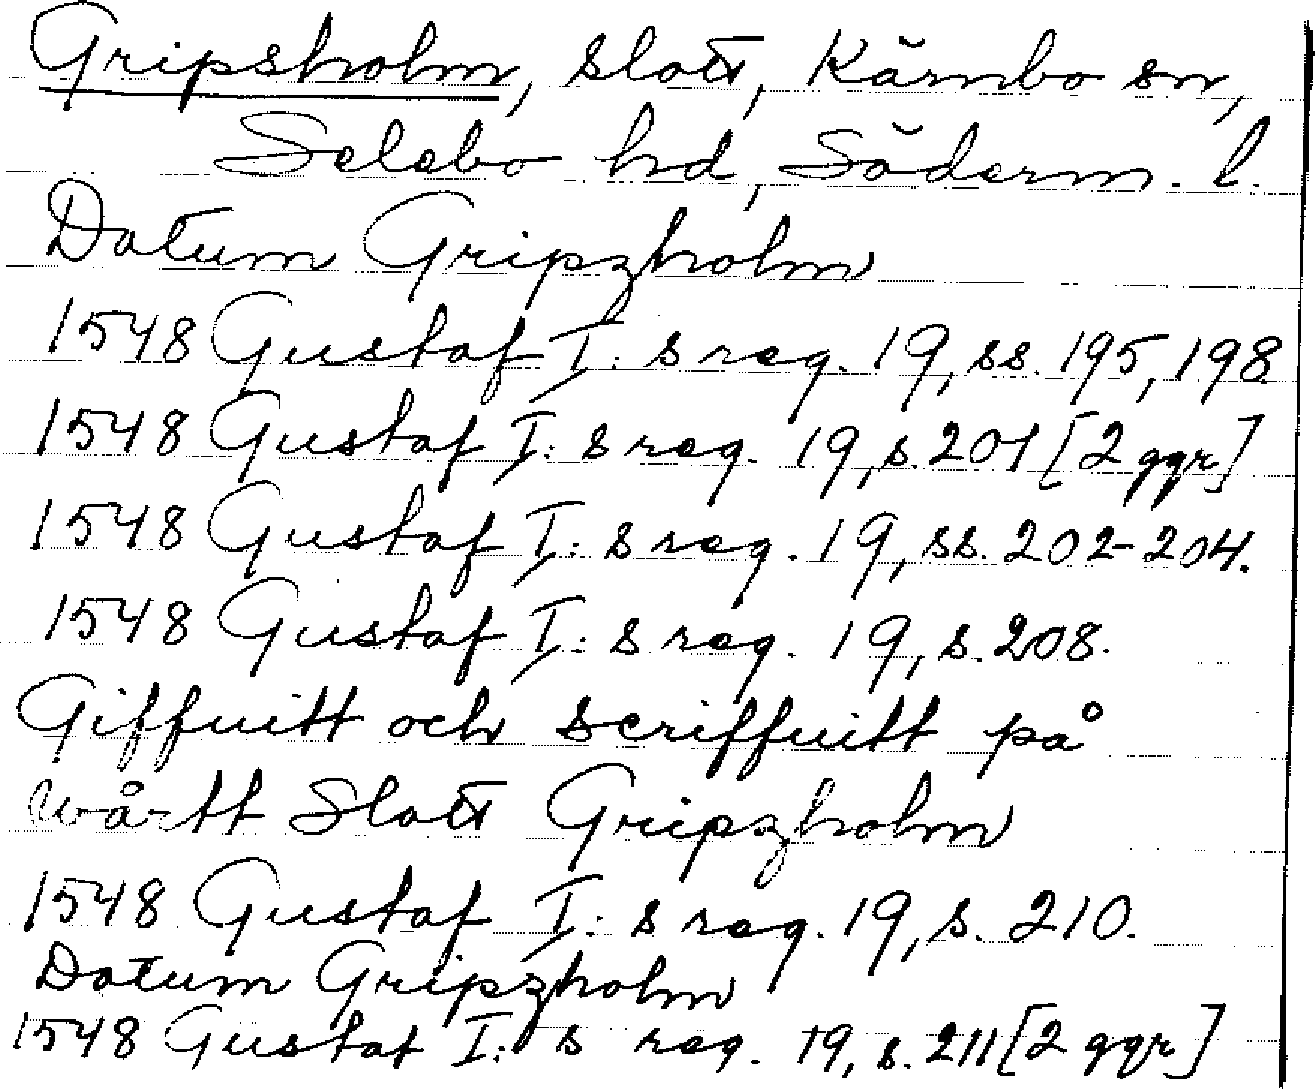 Gripsholm, slott, Kärnbo sn,
Selebo hd, Söderm. l.
Datum Gripzholm
1548 Gustaf I: s reg. 19, ss. 195, 198
1548 Gustaf I: s reg. 19, s. 201 [2 ggr]
1548 Gustaf I: s reg. 19, ss. 202-204.
1548 Gustaf I: s reg. 19, s. 208.
Giffuitt och scriffuitt på
wårtt Slott Gripzholm
1548 Gustaf I: s reg. 19, s. 210.
Datum Gripzholm
1548 Gustaf I: s reg. 19, s. 211 [2 ggr]